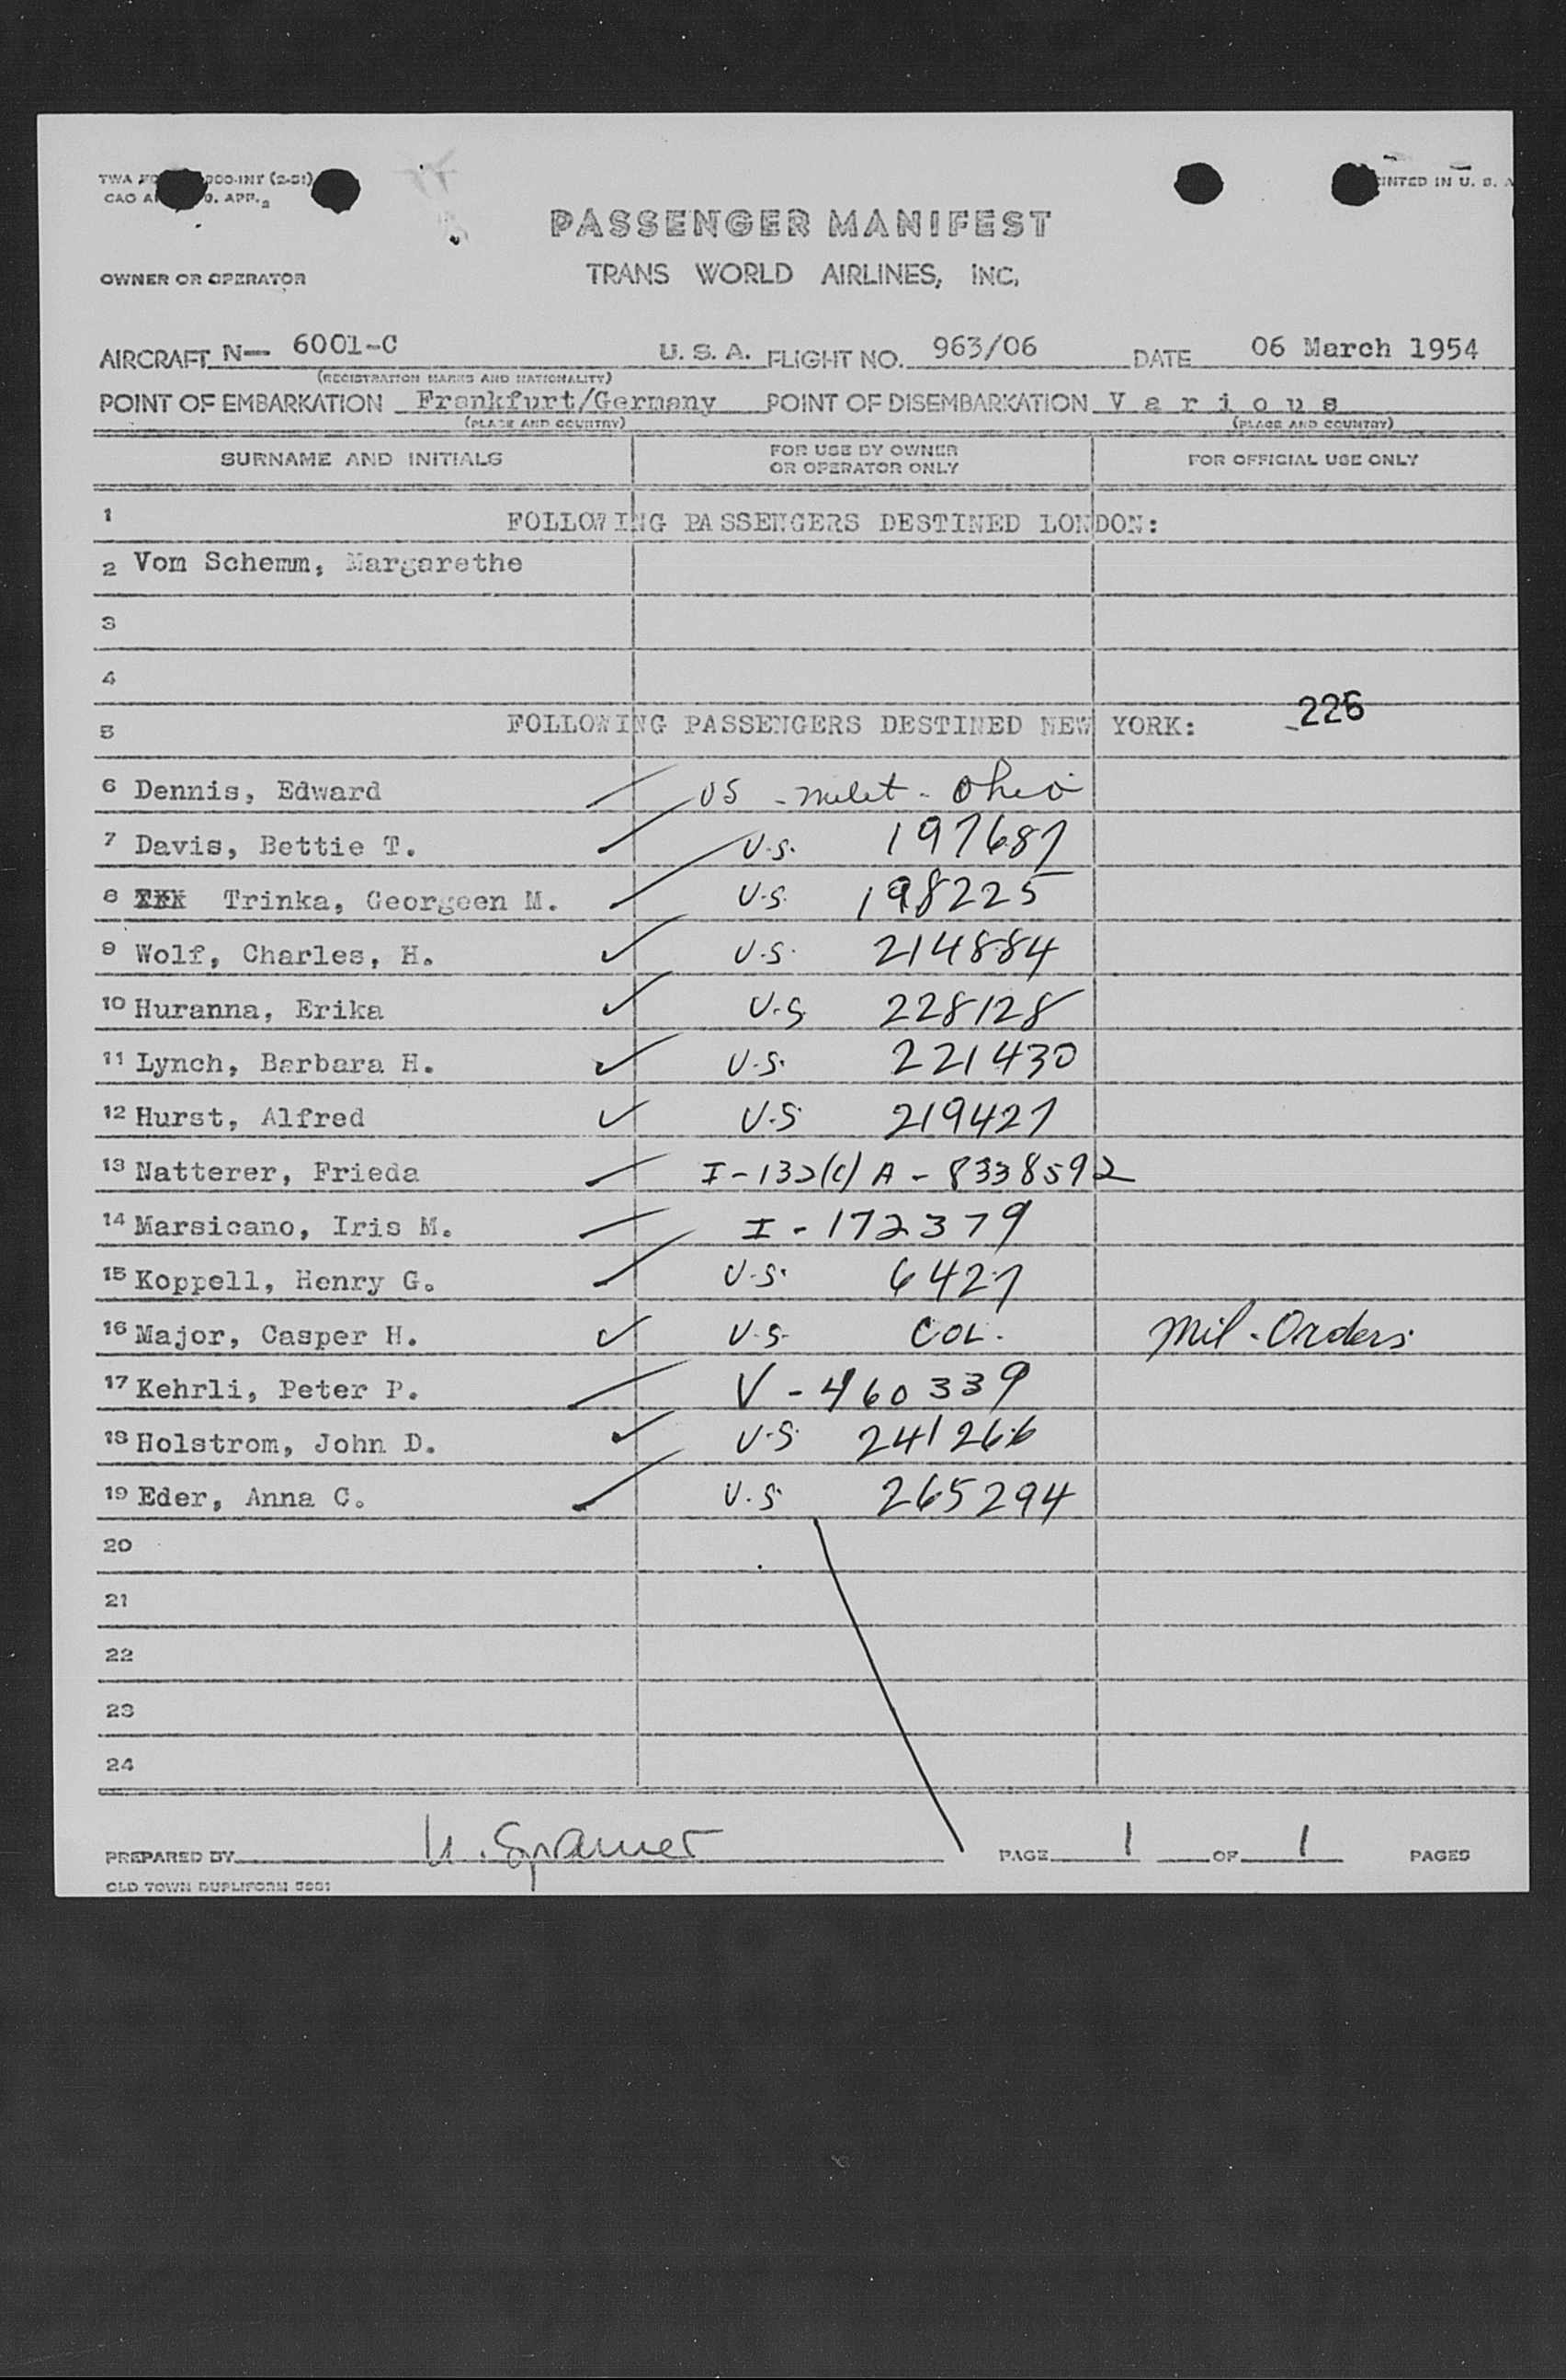 TWA 000-INT (2-51)
PRINTED IN U. S. A
CAO APP.
PASSENGER MANIFEST
OWNER OR OPERATOR TRANS WORLD AIRLINES, INC.
AIRCRAFT N— 6001-C U. S. A. FLIGHT NO. 963/06 DATE 06 March 1954
(REGISTRATION MARKS AND NATIONALITY)
POINT OF EMBARKATION Frankfurt/Germany POINT OF DISEMBARKATION V a r i o u s
(PLACE AND COUNTRY) (PLACE AND COUNTRY)
SURNAME AND INITIALS FOR USE BY OWNER OR OPERATOR ONLY FOR OFFICIAL USE ONLY
1 FOLLOWING PASSENGERS DESTINED LONDON:
2 Vom Schemm, Margarethe
3
4
226
5 FOLLOWING PASSENGERS DESTINED NEW YORK:
6 Dennis, Edward US - milit - Ohio
7 Davis, Bettie T. U.S. 197687
8 Trinka, Georgeen M. U.S. 198225
9 Wolf, Charles, H. U.S. 214884
10 Huranna, Erika U.S. 228128
11 Lynch, Barbara H. U.S. 221430
12 Hurst, Alfred U.S. 219427
13 Natterer, Frieda I-132(c) A-8338592
14 Marsicano, Iris M. I-172379
15 Koppell, Henry G. U.S. 6427
16 Major, Casper H. U.S. COL. Mil-Orders
17 Kehrli, Peter P. V-460339
18 Holstrom, John D. U.S. 241266
19 Eder, Anna C. U.S. 265294
20
21
22
23
24
PREPARED BY PAGE 1 OF 1 PAGES
OLD TOWN DUPLIFORM